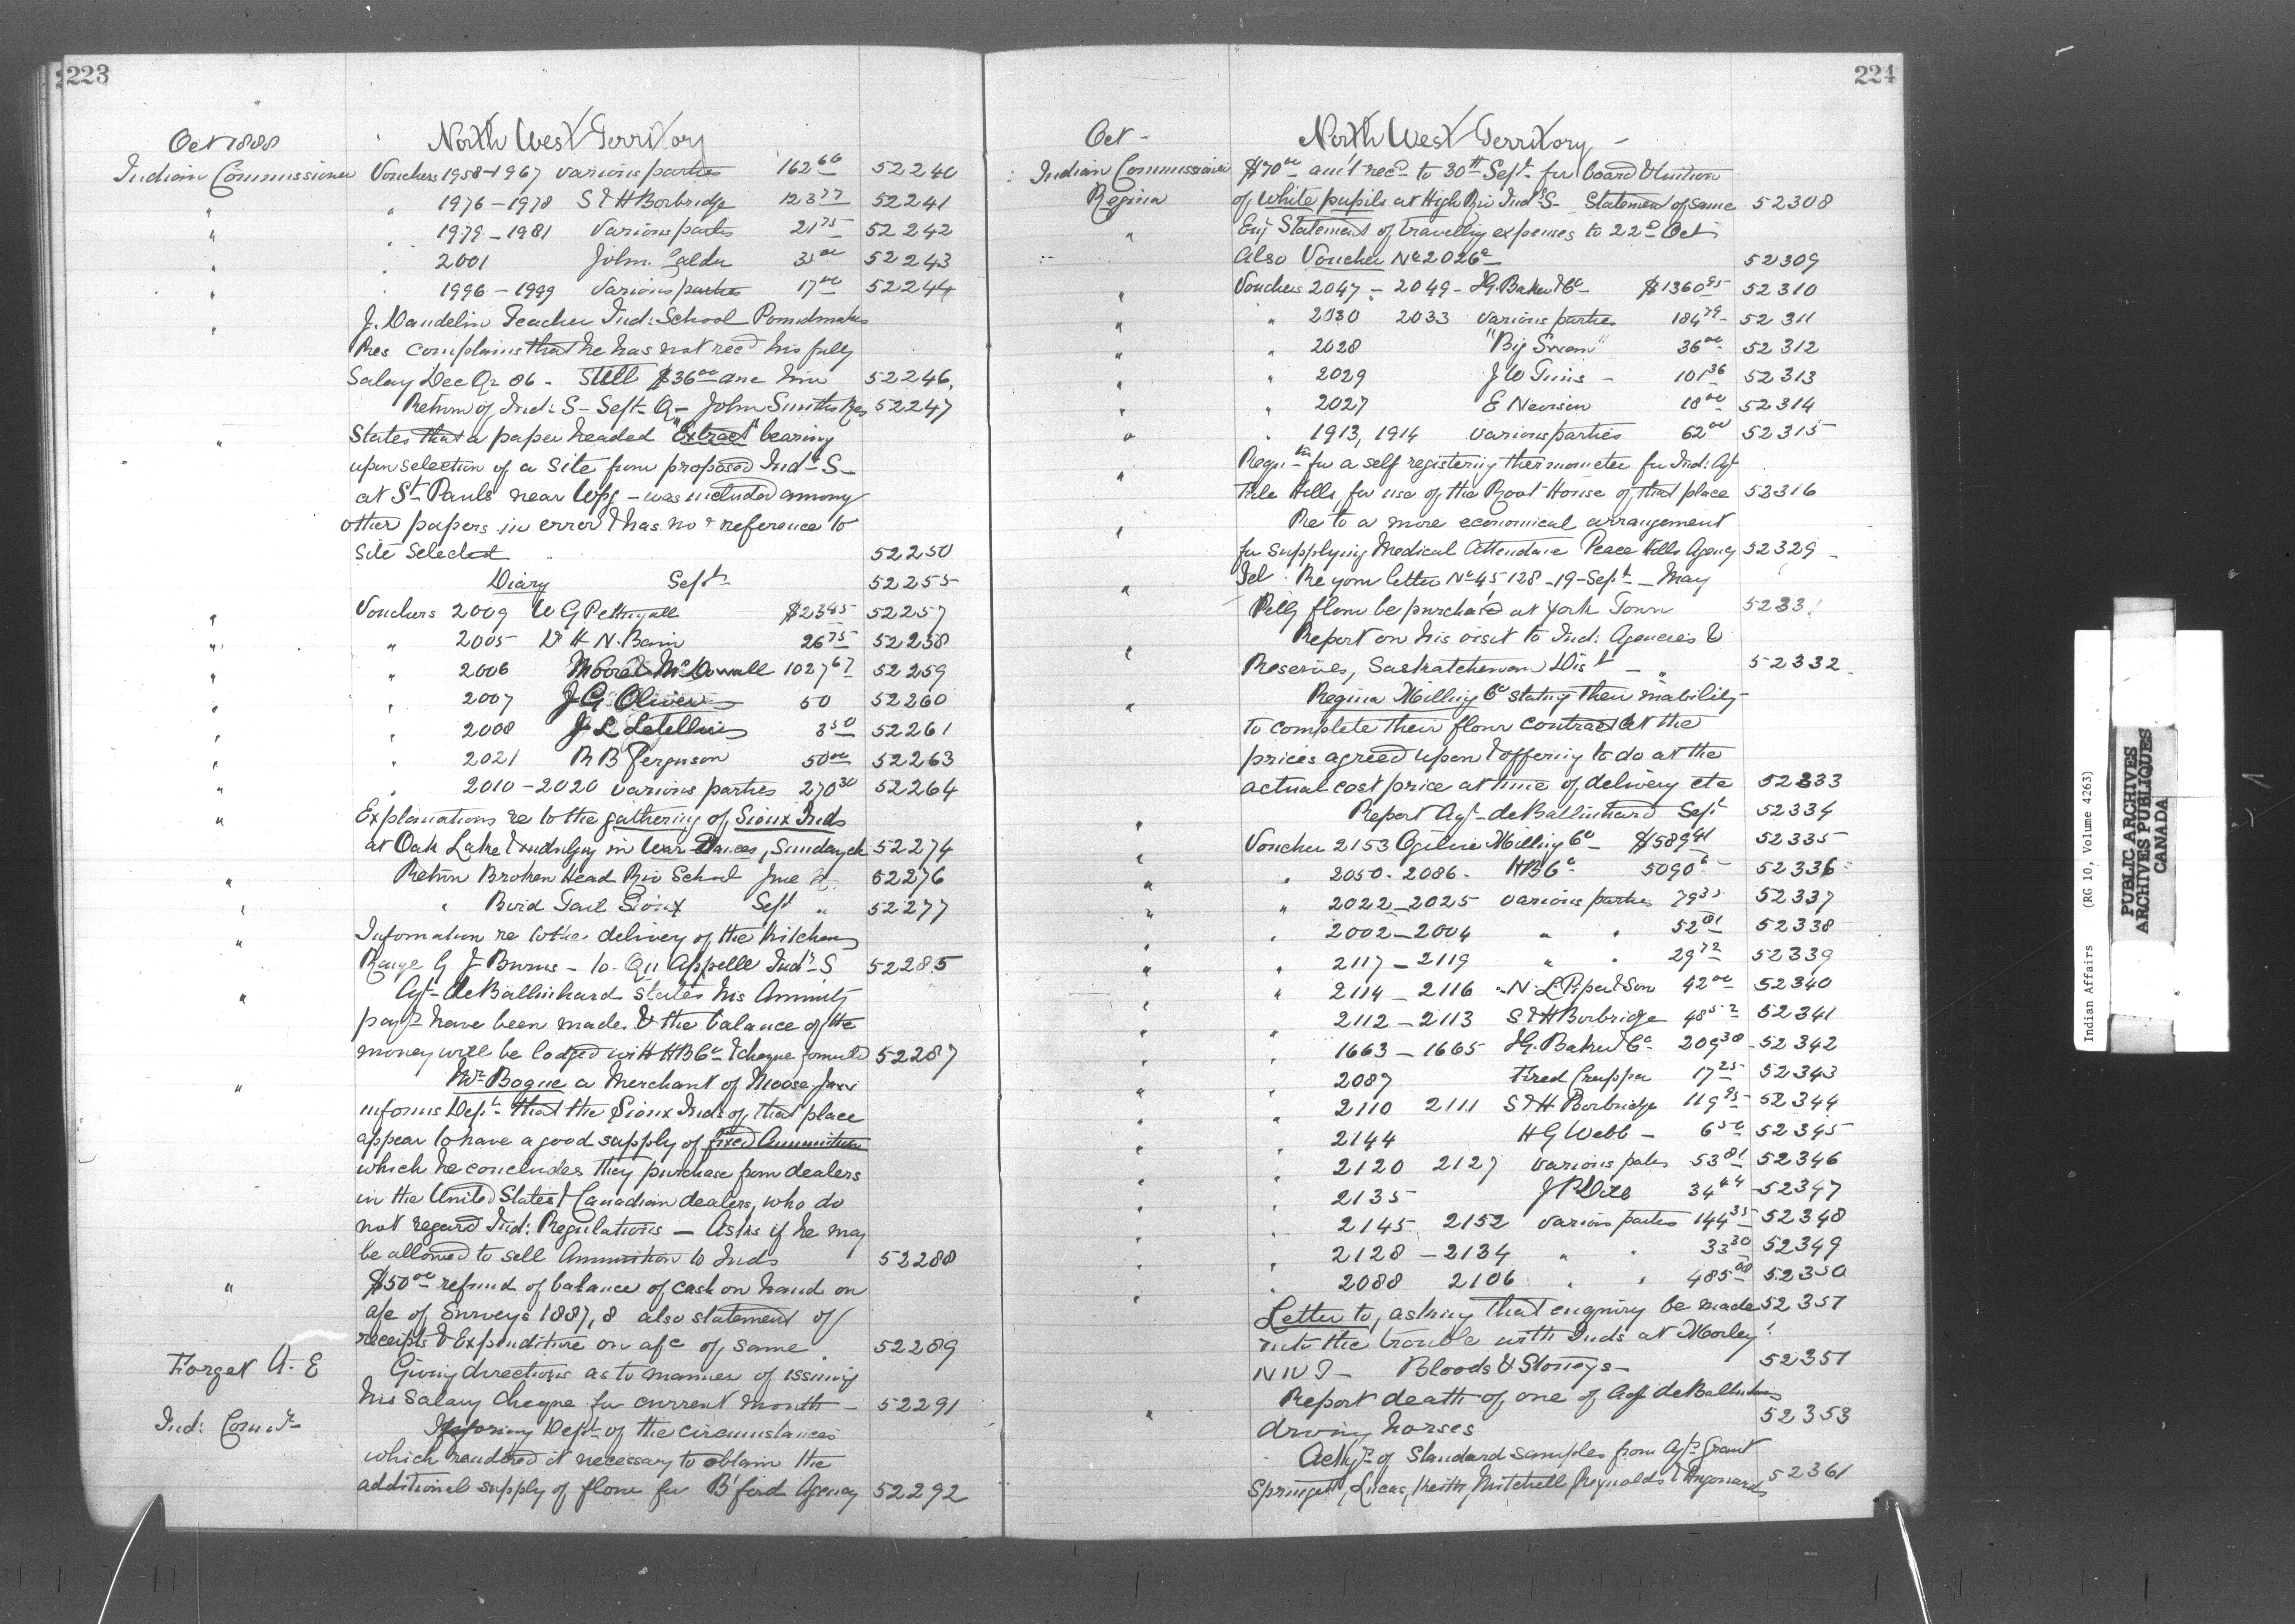 223
Oct 1888 North West Territory
Indian Commissioner Vouchers 1958-1967 various parties 162 66 52240
" " 1976-1978 S & H Borbridge 123 77 52241
" " 1979-1981 Various parties 21 75 52242
" " 2001 John Calder 35 00 52243
" " 1996-1999 Various parties 17 00 52244
" J. Dandelin Teacher Ind: School
Res complains that he has not recd his full
Salary Dec Qr 86 - Still $36 00 due him 52246
Return of Ind: S- Sept Q- John Smiths Res 52247
" States that a paper headed "Extract" bearing
upon selection of a site from proposed Indl S-
at St Pauls near Wpg - was included among
other papers in error & has no reference to
site selected 52250
Diary Sept 52255
" Vouchers 2009 W G Pettingell $23 45 52257
" " 2005 Dr H N. Bain 26 75 52258
" " 2006 Moore & McDowall 1027 67 52259
" " 2007 J G Oliver 50 52260
" " 2008 J L Letellier 3 50 52261
" " 2021 R B Ferguson 50 00 52263
" " 2010-2020 various parties 270 30 52264
" Explanations re to the gathering of Sioux Inds
at Oak Lake & indulging in War Dances, Sunday &c 52274
" Return Broken Head Riv School June Qr 52276
" " Bird Tail Sioux Sept " 52277
" Information re to the delivery of the Kitchen
Range G J Burns - to Qu Appelle Indl S 52285
" Agt deBallinhard states his Annuity
payts have been made & the balance of the
money will be lodged with HBCo & cheque forwarded 52287
" Mr Bogue a Merchant of Moose Jaw
informs Dept that the Sioux Inds of that place
appear to have a good supply of fixed Ammunition
which he concludes they purchase from dealers
in the United States & Canadian dealers, who do
not regard Ind: Regulations - Asks if he may
be allowed to sell Ammunition to Inds 52288
" $50 00 refund of balance of cash on hand on
a/c of Surveys 1887,8 also statement of
receipts & Expenditure on a/c of same 52289
Forget A. E Giving directions as to manner of issuing
his Salary cheque for current month - 52291
Ind: Comr Informing Dept of the circumstances
which rendered it necessary to obtain the
additional supply of flour for B'ford Agency 52292
224
Oct - North West Territory -
Indian Commissioner $70 00 am't recd to 30th Sept for board & tuition
Regina of White pupils at High Riv Indl S- Statement of same 52308
" Enc Statement of travelling expenses to 22d Oct
Also Voucher No 2026a 52309
" Vouchers 2047 - 2049 - I.G. Baker & Co $1360 95 52310
" " 2030 2033 various parties 184 79 52311
" " 2028 "Big Swan" 36 00 52312
" " 2029 J W 101 36 52313
" " 2027 E Nevison 18 00 52314
" " 1913, 1914 various parties 62 00 52315
" Reqn for a self registering thermometer for Ind: Agt
File Hills, for use of the Root House of that place 52316
" Re to a more economical arrangement
for supplying Medical Attendance Peace Hills Agency 52329
" Tel: Re your letter No 45128 - 19 - Sept - May
Pelly flour be purchased at York Town 52331
" Report on his visit to Ind: Agencies &
Reserves, Saskatchewan Dist - " 52332
" Regina Milling Co stating their inability
to complete their flour contract at the
prices agreed upon & offering to do at the
actual cost price at time of delivery etc 52333
" Report Agt deBallinhard Sept 52334
" Voucher 2153 Ogilvie Milling Co $589 41 52335
" " 2050 - 2086 - HBCo 5090 6 52336
" " 2022-2025 various parties 79 35 52337
" " 2002-2004 " " 52 81 52338
" " 2117-2119 " " 29 72 52339
" " 2114-2116 N. L Piper & Son 42 00 52340
" " 2112-2113 S & H Borbridge 48 52 52341
" " 1663-1665 I.G. Baker & Co 209 30 52342
" " 2087 Fred Crupper 17 25 52343
" " 2110 2111 S & H Borbridge 119 95 52344
" " 2144 H G Webb - 6 50 52345
" " 2120 2127 Various parties 53 81 52346
" " 2135 J P Dill 34 44 52347
" " 2145 2152 various parties 144 35 52348
" " 2128-2134 " " 33 30 52349
" " 2088 2106 " " 485 00 52350
" Letter to, asking that enquiry be made 52351
into the trouble with Inds at Morley
N W T - Bloods & Stoneys - 52351
" Report death of one of Agt deBallinhards
driving horses 52353
Ackgt of Standard samples from Agts Grant
Springett, Lucas, Keith, Mitchell, Reynolds & 52361
Indian Affairs (RG 10, Volume 4263)
PUBLIC ARCHIVES
ARCHIVES PUBLIQUES
CANADA